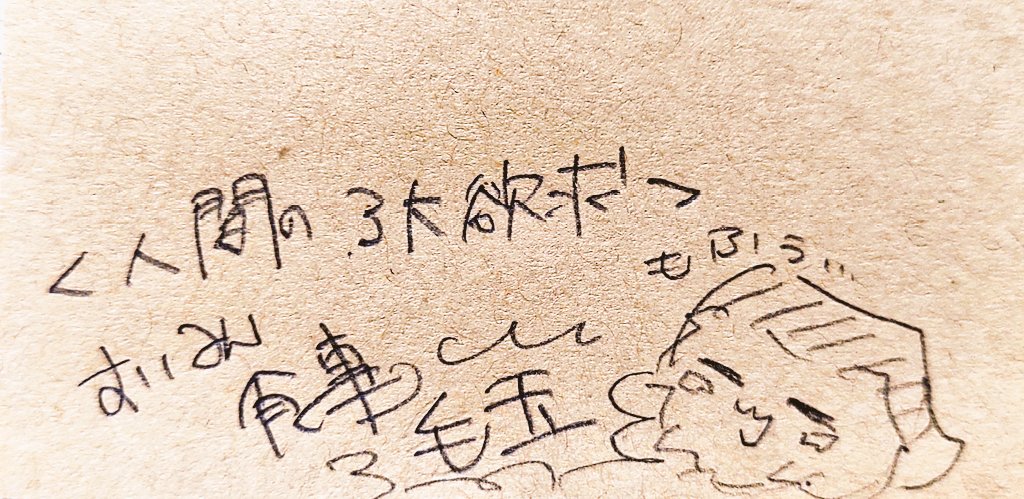 <人間の3大欲求>
もふぅ…
すいみん
食事
毛玉